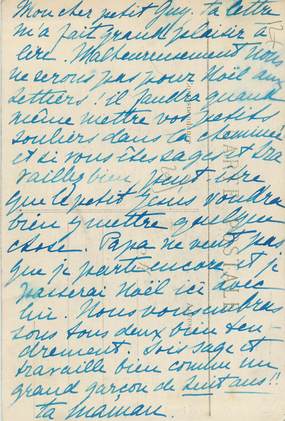 Mon cher petit Guy. ta lettre
m'a fait grand plaisir à
lire. Malheureusement nous
ne serons pas pour Noël aux
Settiers ! il faudra quand
même mettre vos petits
souliers dans la cheminée
et si vous êtes sages & tra
vaillez bien peut être
que le petit Jésus voudra
bien y mettre quelque
chose. Papa ne veut pas
que je parte encore et je
passerai Noël ici avec
lui. Nous vous embras
sons tous deux bien ten-
drement. Sois sage et
travaille bien comme un
grand garçon de huit ans!!
ta maman.
CARTE POSTALE